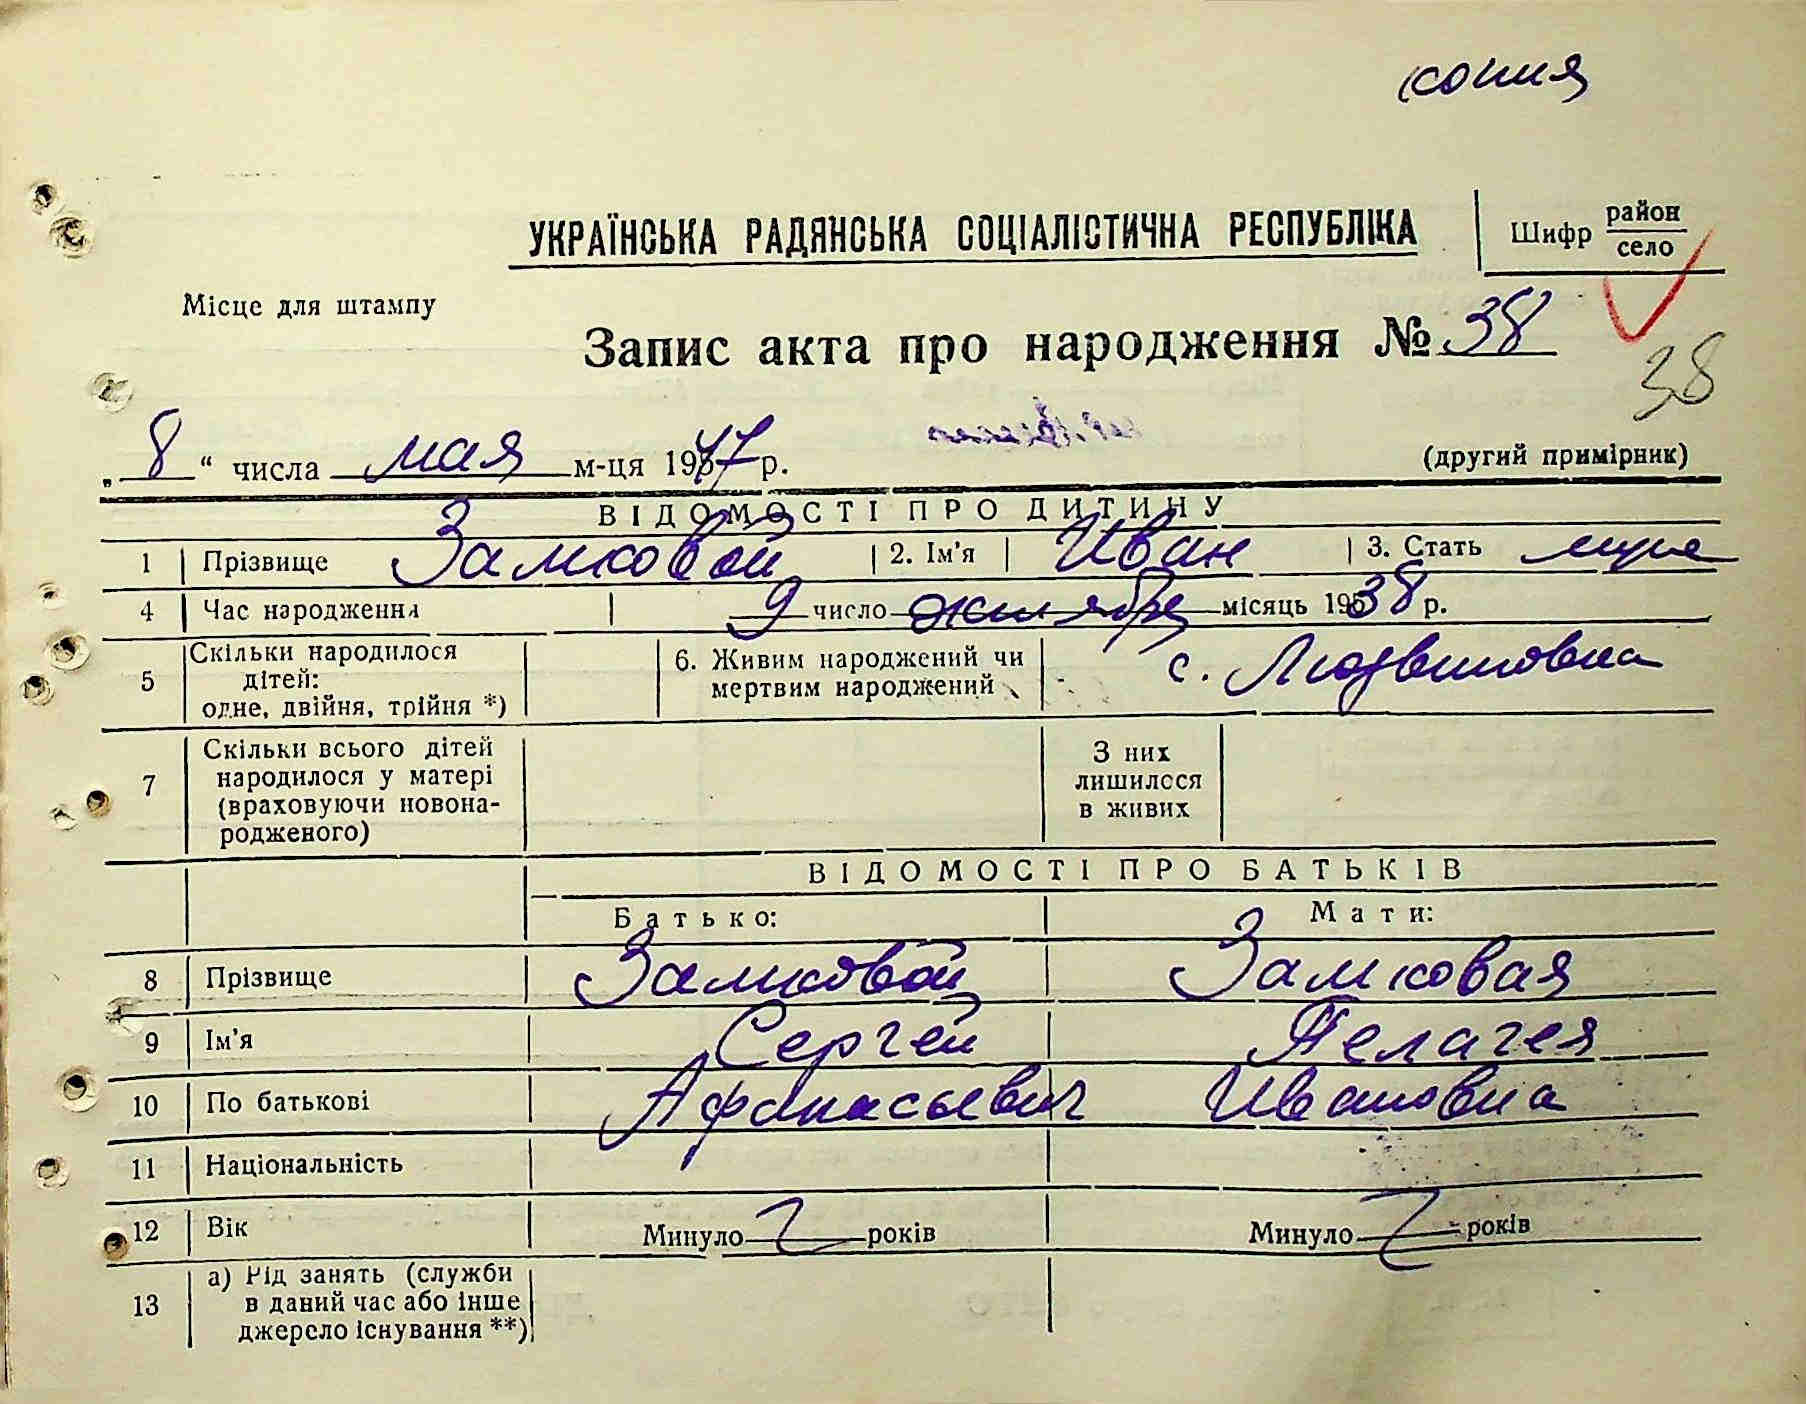 копия
УКРАЇНСЬКА РАДЯНСЬКА СОЦІАЛІСТИЧНА РЕСПУБЛІКА
Шифр район
село
Місце для штампу
Запис акта про народження № 38
38
„ 8 “ числа мая м-ця 1947 р.
(другий примірник)
ВІДОМОСТІ ПРО ДИТИНУ
1 Прізвище Замковой 2. Ім'я Иван 3. Стать муж
4 Час народження 9 число октября місяць 1938 р.
5 Скільки народилося дітей: одне, двійня, трійня *) 6. Живим народжений чи мертвим народжений с. Людвиковка
7 Скільки всього дітей народилося у матері (враховуючи новонародженого) З них лишилося в живих
ВІДОМОСТІ ПРО БАТЬКІВ
Батько: Мати:
8 Прізвище Замковой Замковая
9 Ім'я Сергей Пелагея
10 По батькові Афанасьевич Ивановна
11 Національність
12 Вік Минуло років Минуло років
13 а) Рід занять (служби в даний час або інше джерело існування **)